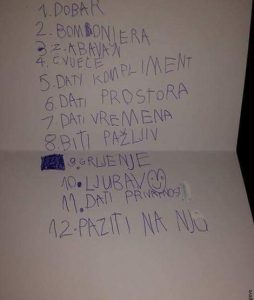 1. DOBAR
2. BOMBONJERA
3. ZABAVAN
4. CVIJEĆE
5. DATI KOMPLIMENT
6. DATI PROSTORA
7. DATI VREMENA
8. BITI PAŽLJIV
9. GRLJENJE
10. LJUBAV
11. DATI PRIVATNOST
12. PAZITI NA NJU